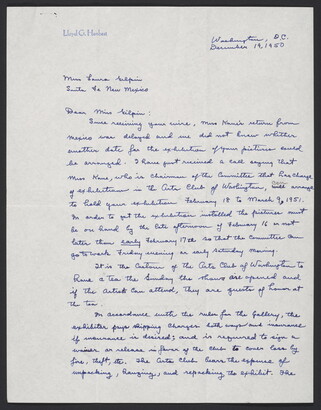 Lloyd G. Herbert
Washington, D.C.
December 19, 1950
Miss Laura Gilpin
Santa Fe New Mexico
Dear Miss Gilpin:
Since receiving your wire, Miss Kane's return from
Mexico was delayed and we did not know whether
another date for the exhibition of your pictures could
be arranged. I have just received a call saying that
Miss Kane, who is Chairman of the Committee that has charge
of exhibitions in the Arts Club of Washington, will arrange
to hold your exhibition February 18 to March 9, 1951.
In order to get the exhibition installed the pictures must
be on hand by the late afternoon of February 16 or not
later than early February 17th so that the Committee can
go to work Friday evening or early Saturday morning.
It is the custom of the Arts Club of Washington to
have a tea the Sunday the shows are opened and
if the Artists can attend, they are guests of honor at
the tea.
In accordance with the rules for the Gallery, the
exhibitor pays shipping charges both ways and insurance
if insurance is desired; and is required to sign a
waiver or release in favor of the Club to cover loss by
fire, theft, etc. The Arts Club bears the expense of
unpacking, hanging, and repacking the exhibit. The